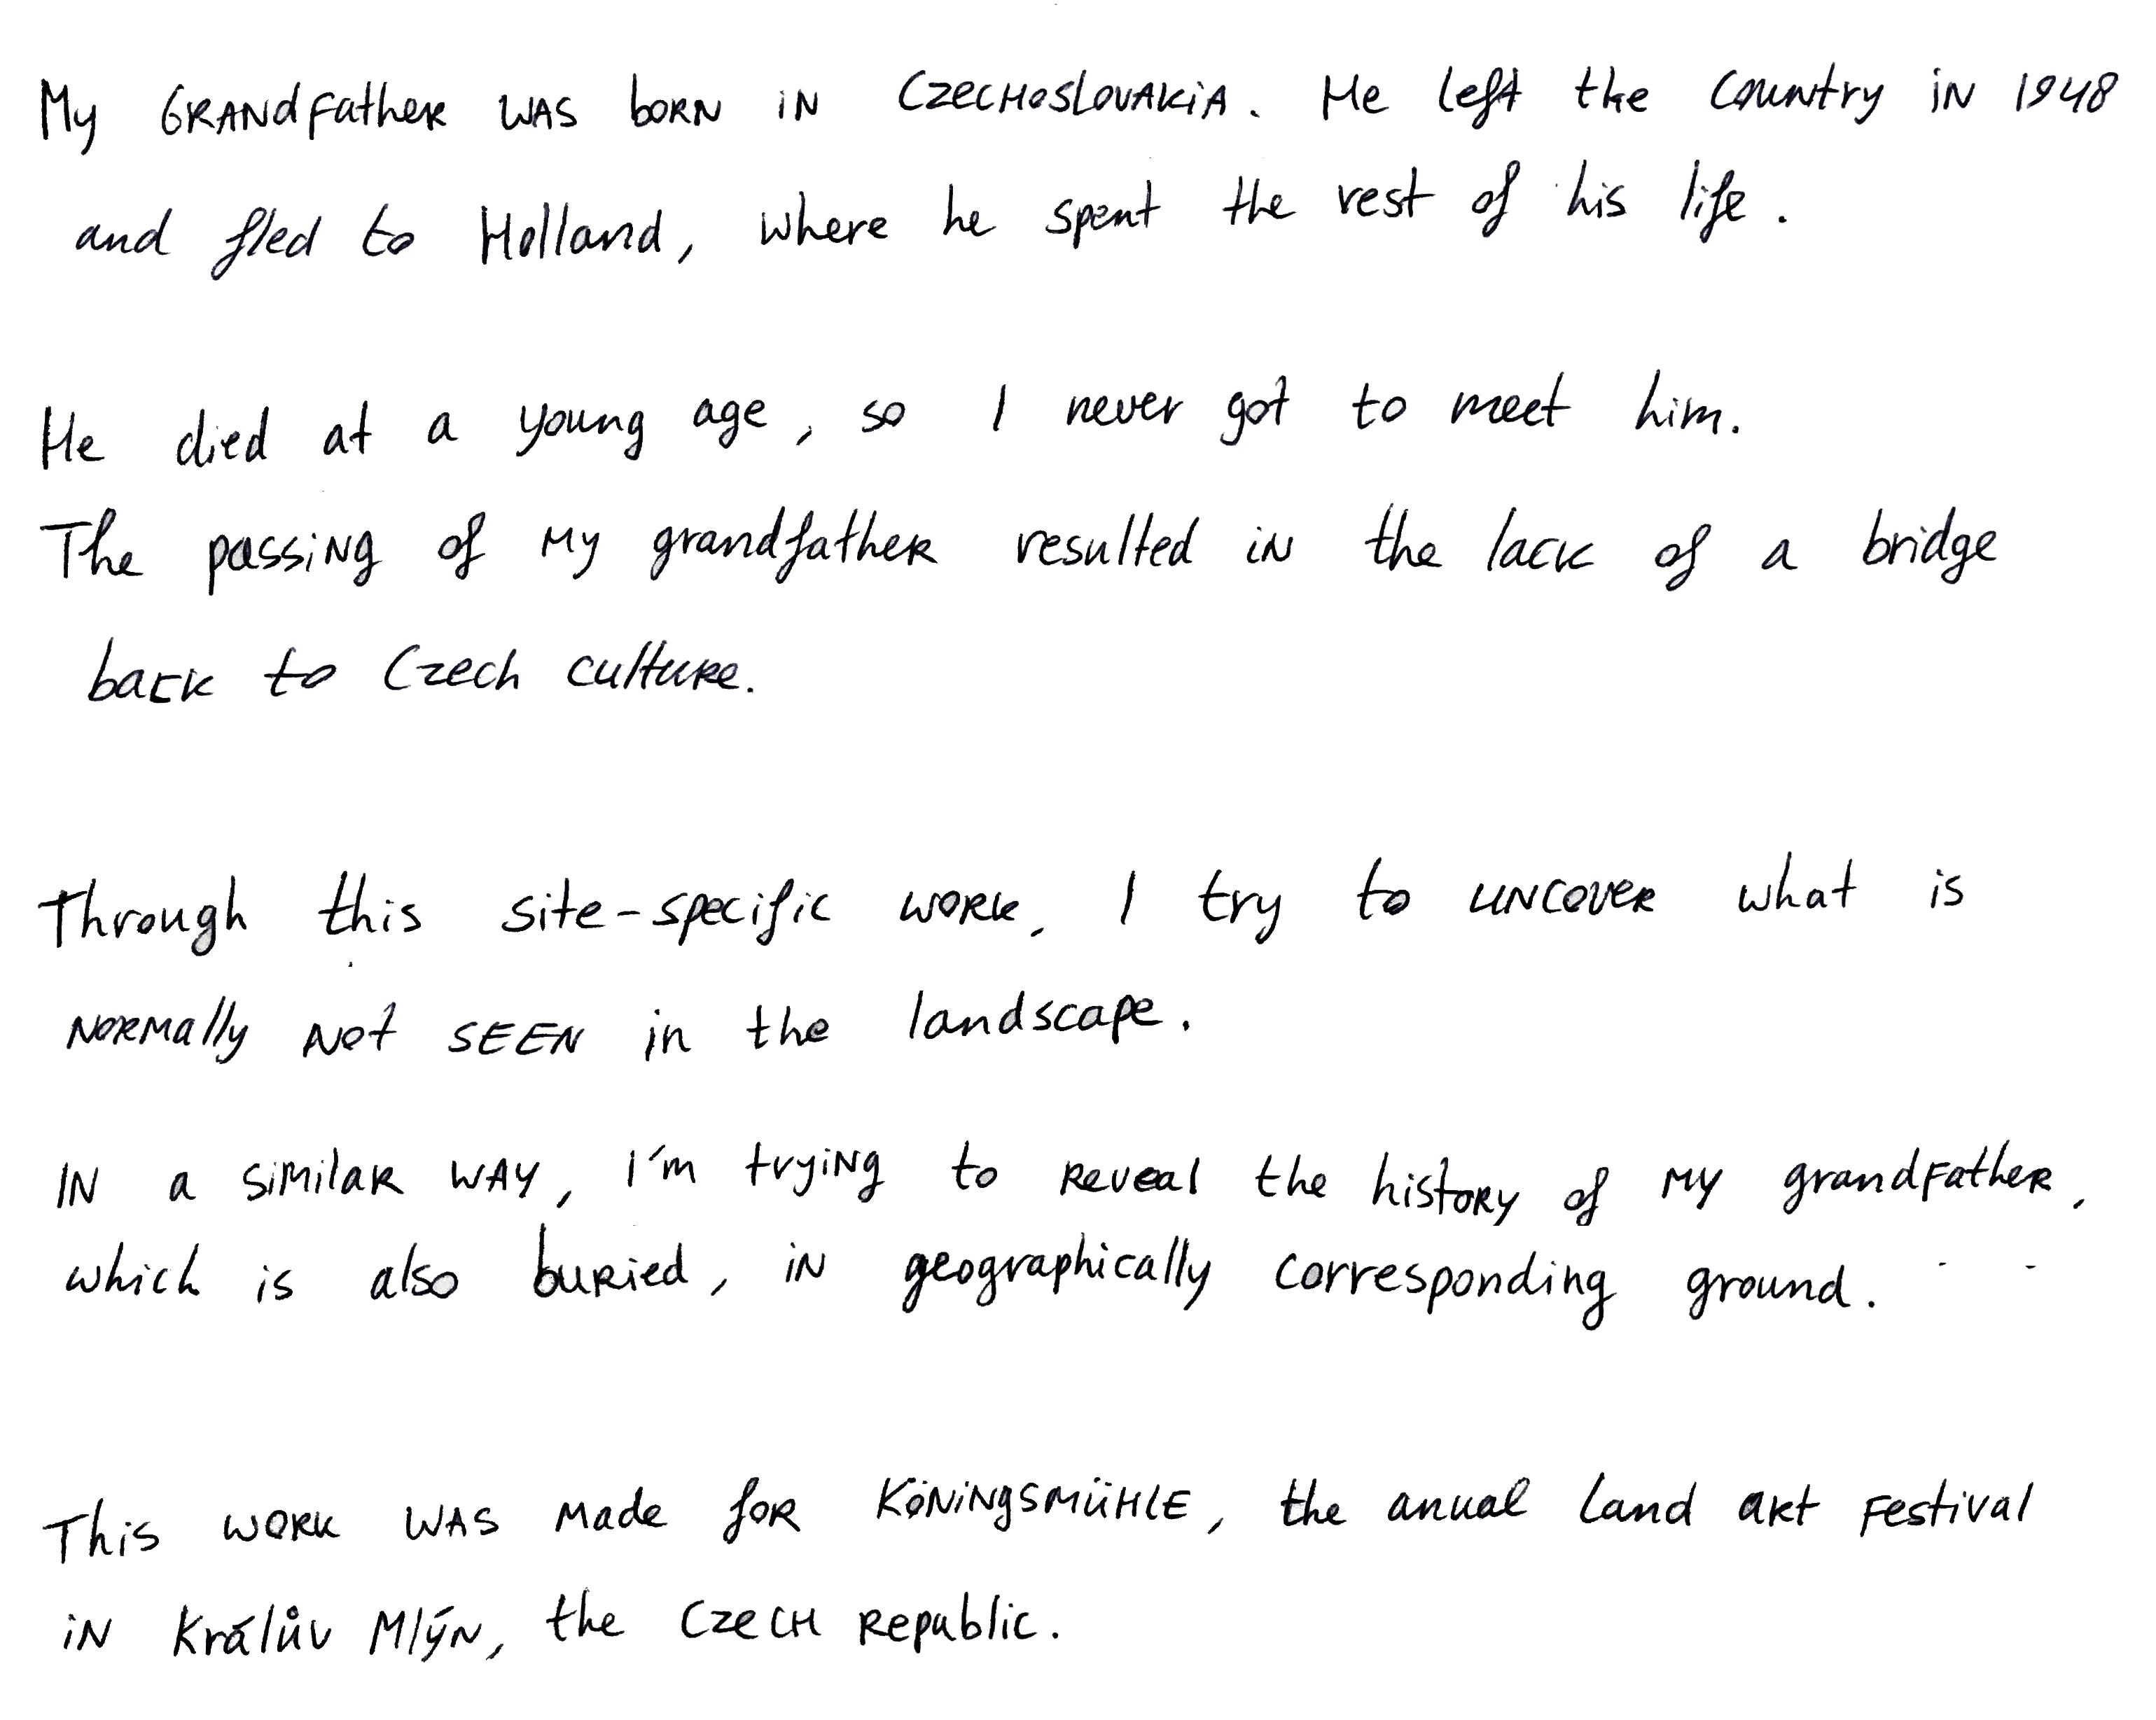 My Grandfather was born in Czechoslovakia. He left the country in 1948
and fled to Holland, where he spent the rest of his life.
He died at a young age, so I never got to meet him.
The passing of my grandfather resulted in the lack of a bridge
back to Czech culture.
Through this site-specific work, I try to uncover what is
normally not seen in the landscape.
In a similar way, I'm trying to reveal the history of my grandfather,
which is also buried, in geographically corresponding ground.
This work was made for Köningsmühle, the anual land art festival
in Králův Mlýn, the Czech Republic.